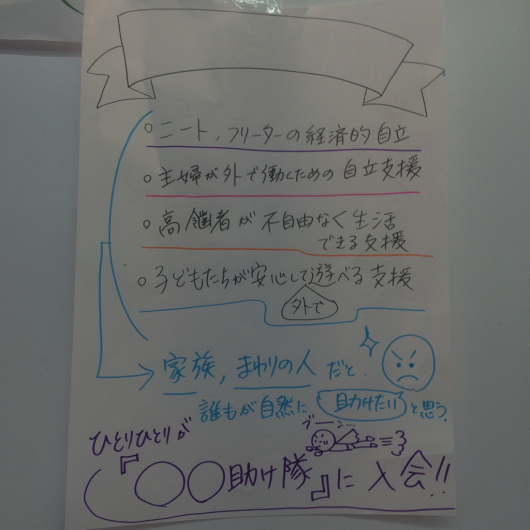 ○ニート、フリーターの経済的自立
○主婦が外で働くための自立支援
○高齢者が不自由なく生活
できる支援
○子どもたちが安心して遊べる支援
外で
家族,まわりの人だと.
誰もが自然に助けたいと思う.
ブーン…
ひとりひとりが
『○○助け隊』に入会!!